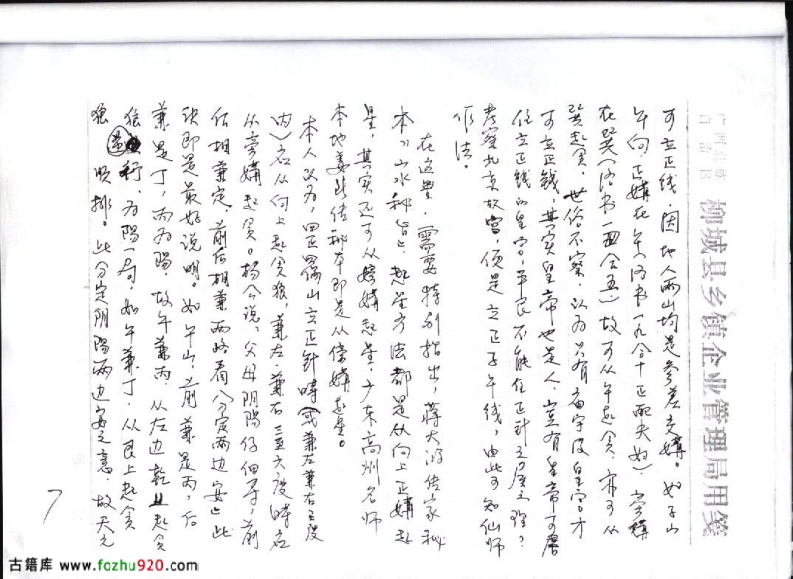 广西壮族自治区 柳城县乡镇企业管理局用笺
可立正线，因地人两山均是参差交媾。如子山
午向，正媾在午（洛书一九合十正配夫妇）宾媾
在巽（洛书一四合五）故可从午起贪，亦可从
巽起贪，世俗不察，以为只有庙宇及皇宫才
可立正线，其实皇帝也是人，岂有皇帝可居
住立正线的皇宫，平民不能住正针之屋之理？
考察北京故宫，便是立正子午线，由此可知仙师
作法。
在这里，需要特别指出，蒋大鸿传家秘
本《山水秘旨》起星方法都是从向上正媾起
星，其实还可从媾起星，广东高州名师
本地姜氏传秘本即是从媾起星。
本人以为，四正四隅山立正针时（或兼左兼右三度
内）应从向上起贪狼，兼左、兼右三至六度时应
从宾媾起贪。杨公说，父母阴阳仔细寻，前
后相兼定，前后相兼两路看，分定两边安，此
诀即是最好说明。如午山，前兼是丙，后
兼是丁，丙为阳，故午兼丙，从左边乾上起贪
狼行，为阳一局，如午兼丁，从艮上起贪
狼顺排。此分定阴阳两边安之意，故天元
7
古籍库 www.fozhu920.com